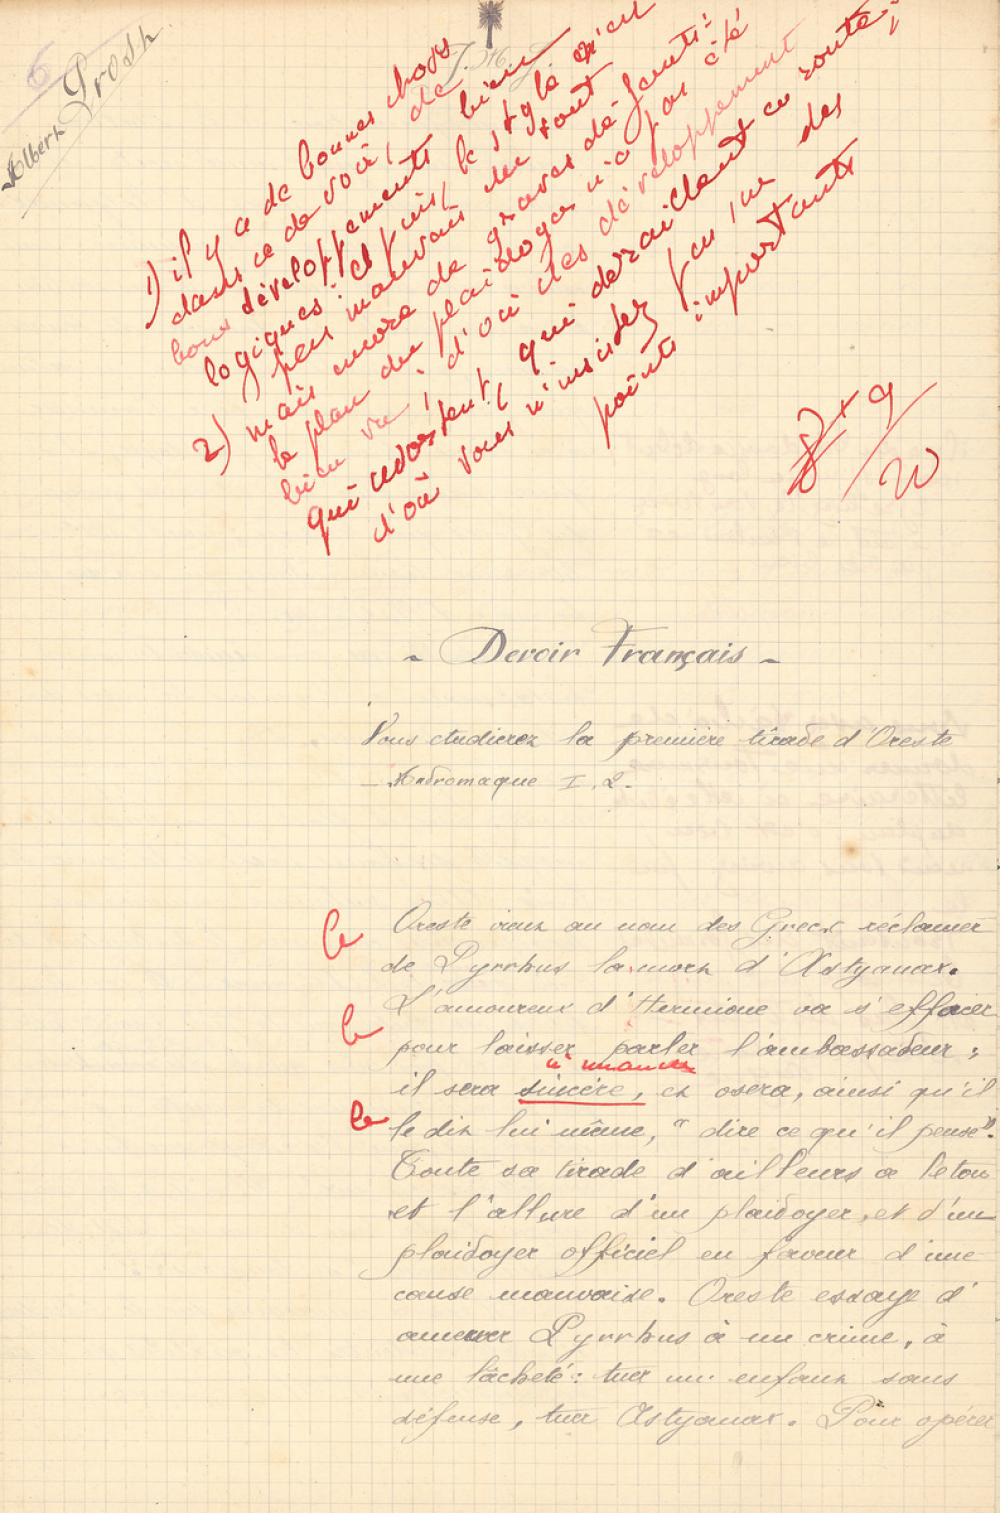 6
Albert Prost
J. M. J.
1) il y a de bonnes choses
dans ce devoir, de
bons développements bien
logiques; et puis, le style n'est
pas mauvais du tout
2) mais encore de graves défauts:
le plan du plaidoyer n'a pas été
bien vu; d'où des développement
qui avortent, qui déraillent en route;
d'où vous n'insistez pas sur des
points importants
8 + 9/20
~ Devoir Français ~
Vous étudierez la première tirade d'Oreste
- Andromaque I, 2.
Oreste vient au nom des Grecs réclamer
de Pyrrhus la mort d'Astyanax.
L'amoureux d'Hermione va s'effacer
pour laisser parler l'ambassadeur;
il sera sincère, et osera, ainsi qu'il
le dit lui même, "dire ce qu'il pense".
Toute sa tirade d'ailleurs a le ton
et l'allure d'un plaidoyer, et d'un
plaidoyer officiel en faveur d'une
cause mauvaise. Oreste essaye d'
amener Pyrrhus à un crime, à
une lâcheté: tuer un enfant sans
défense, tuer Astyanax. Pour opérer